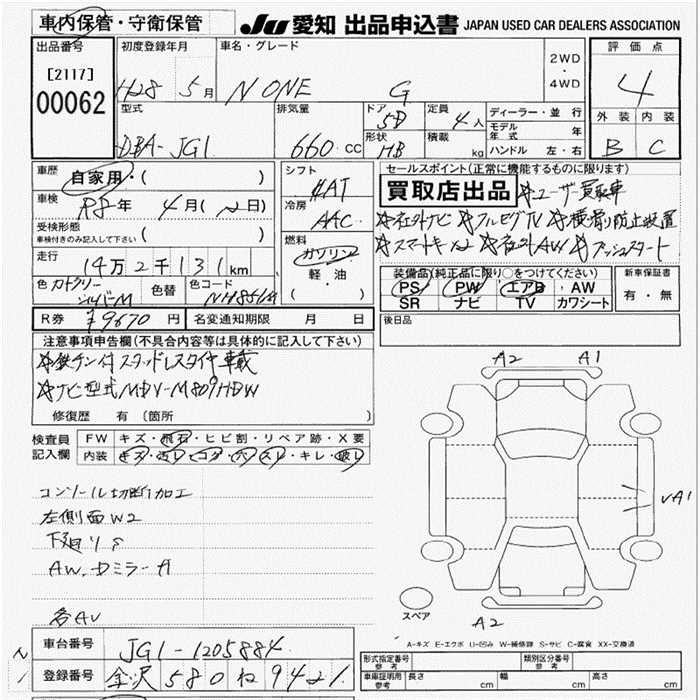 車内保管・守衛保管
JU 愛知 出品申込書 JAPAN USED CAR DEALERS ASSOCIATION
出品番号 初度登録年月 車名・グレード 評価点
[2117]
00062
H28 5月 N ONE G 2WD・4WD 4
型式 排気量 ドア 5D 定員 4人 ディーラー・並行 外装 内装
モデル年式 年
DBA-JG1 660 CC 形状 HB 積載 kg ハンドル 左・右 B C
車歴 自家用・( )
シフト FAT
セールスポイント(正常に機能するものに限ります)
買取店出品 ☆ユーザー買取車
車検 R8年 4月(2日)
冷房 AAC
☆社外ナビ ☆フルセグTV ☆横滑り防止装置
受検形態
車検付きのみ記入して下さい( )
☆スマートキーx2 ☆社外AW ☆プッシュスタート
走行 14万2千131km
燃料 ガソリン・軽・油 ( )
装備品(純正品に限り○をつけてください) 新車保証書
PS PW エアB AW 有・無
SR ナビ TV カワシート
色 カトクリー シルバーM 色替 色コード NH851M
R券 ¥9670円 名変通知期限 月 日
後日品
注意事項申告欄(不具合内容等は具体的に記入して下さい)
☆鉄チン付スタッドレスタイヤ車載
☆ナビ型式MDV-M809HDW
修復歴 有(箇所 )
A2 A1
検査員記入欄 FW キズ・飛石・ヒビ割・リペア跡・X要
内装 キズ・汚レ・コゲ・穴・スレ・キレ・破レ
コンソール切断加工
左側面W2
下廻りS
AW.Dミラー A
各AU
VA1
スペア
A2
A-キズ E-エクボ U-凹み W-補修跡 S-サビ C-腐食 XX-交換済
車台番号 JG1-1205884
登録番号 金沢 580 ね 9421
形式指定番号 参考 類別区分番号 参考
車庫証明用 参考 長さ cm 幅 cm 高さ cm